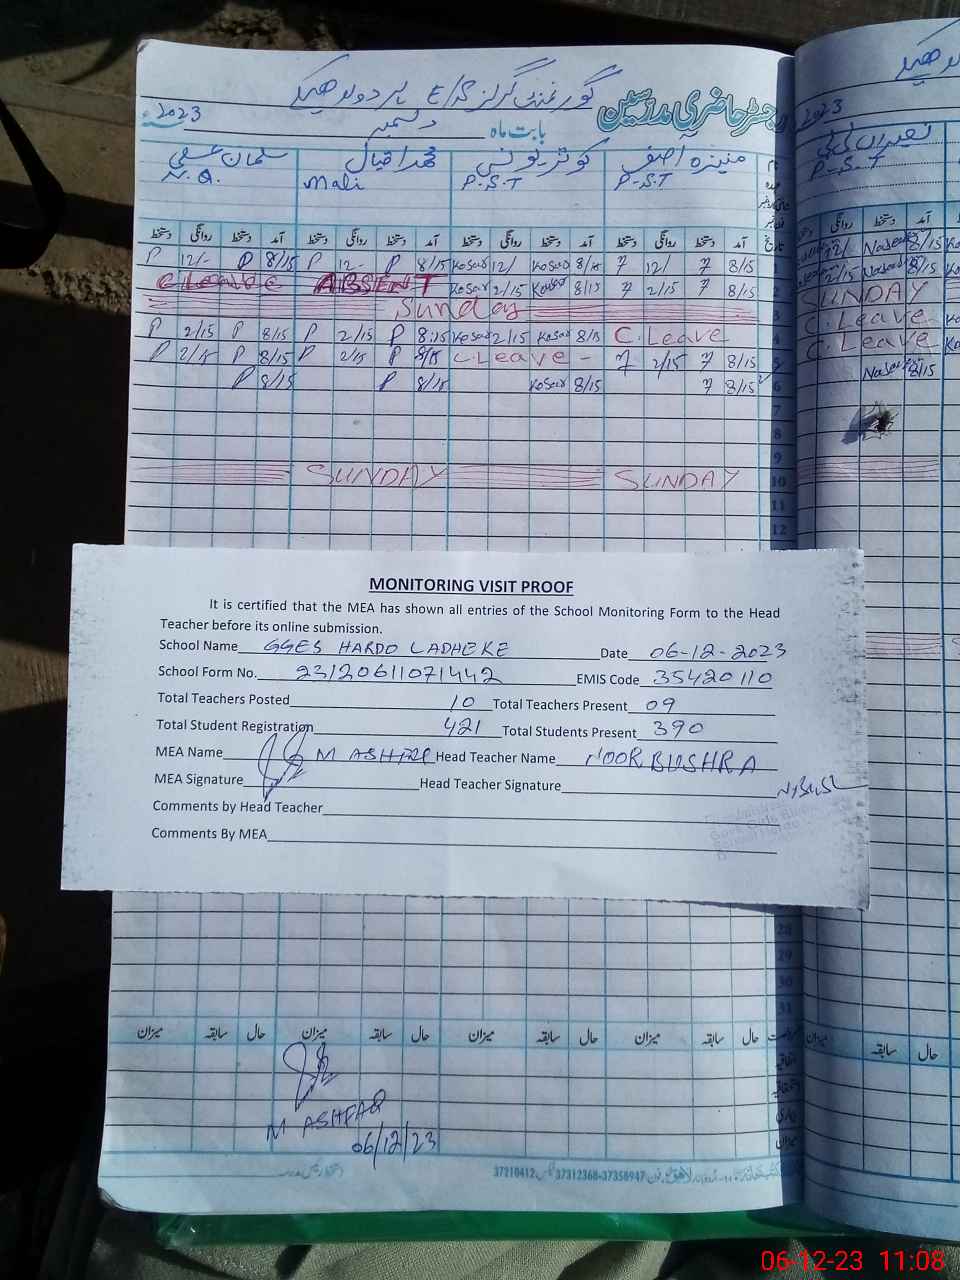 گورنمنٹ گرلز E/S ہردولدھیکے
رجسٹر حاضری مدرسین
بابت ماہ دسمبر 2023
منیزہ آصف کوثر یونس محمد اقبال سلمان
P.S.T P.S.T Mali N.Q.
آمد دستخط روانگی دستخط آمد دستخط روانگی دستخط آمد دستخط روانگی دستخط آمد دستخط روانگی دستخط
P 12/- P 8/15 P 12- P 8/15 Kosar 12/ Kosar 8/15 7 12/ 7 8/15 1
C Leave ABSENT Kosar 2/15 Kosar 8/15 7 2/15 7 8/15 2
Sunday 3
P 2/15 P 8/15 P 2/15 P 8:15 Kosar 2/15 Kosar 8/15 C. Leave 4
P 2/15 P 8/15 P 2/15 P 8/15 C Leave - 7 2/15 7 8/15 5
P 8/15 P 8/15 Kosar 8/15 7 8/15 6
7
8
9
SUNDAY SUNDAY 10
11
12
2023
P.S.T
آمد دستخط روانگی
12/ 8/15
2/15 8/15
SUNDAY
C. Leave
C. Leave
8/15
MONITORING VISIT PROOF
It is certified that the MEA has shown all entries of the School Monitoring Form to the Head
Teacher before its online submission.
School Name GGES HARDO LADHEKE Date 06-12-2023
School Form No. 23120611071442 EMIS Code 35420110
Total Teachers Posted 10 Total Teachers Present 09
Total Student Registration 421 Total Students Present 390
MEA Name M ASHFAQ Head Teacher Name NOOR BUSHRA
MEA Signature Head Teacher Signature
Comments by Head Teacher
Comments By MEA
28
29
30
31
حال سابقہ میزان حال سابقہ میزان حال سابقہ میزان حال سابقہ میزان
میزان
حال سابقہ میزان
M ASHFAQ
06/12/23
37210412 37312368-37358947
06-12-23 11:08